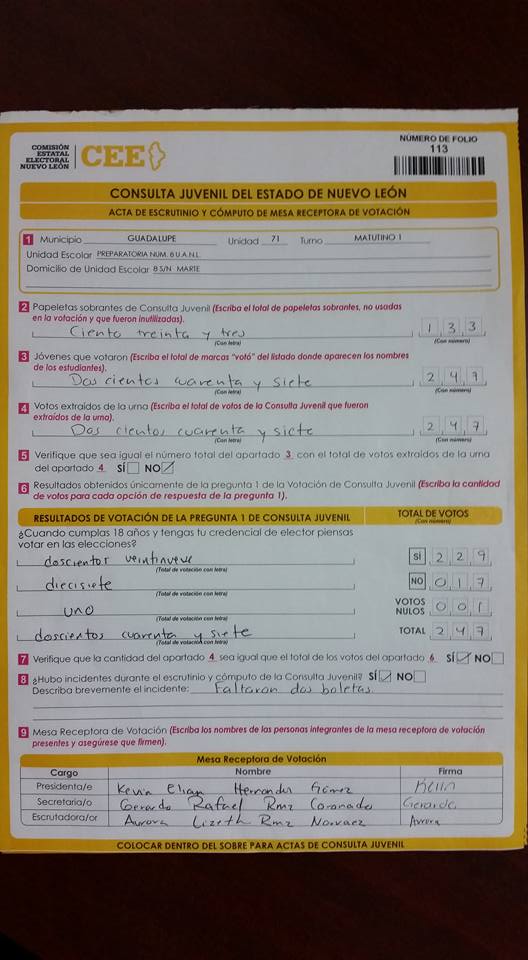 COMISIÓN
ESTATAL
ELECTORAL
NUEVO LEÓN
CEE
NÚMERO DE FOLIO
113
CONSULTA JUVENIL DEL ESTADO DE NUEVO LEÓN
ACTA DE ESCRUTINIO Y CÓMPUTO DE MESA RECEPTORA DE VOTACIÓN
1 Municipio GUADALUPE Unidad 71 Turno MATUTINO 1
Unidad Escolar PREPARATORIA NUM. 8 U.A.N.L.
Domicilio de Unidad Escolar 8 S/N MARTE
2 Papeletas sobrantes de Consulta Juvenil (Escriba el total de papeletas sobrantes, no usadas
en la votación y que fueron inutilizadas).
Ciento treinta y tres 1 3 3
(Con letra) (Con número)
3 Jóvenes que votaron (Escriba el total de marcas "votó" del listado donde aparecen los nombres
de los estudiantes).
Dos cientos cuarenta y siete 2 4 7
(Con letra) (Con número)
4 Votos extraídos de la urna (Escriba el total de votos de la Consulta Juvenil que fueron
extraídos de la urna).
Dos cientos cuarenta y siete 2 4 7
(Con letra) (Con número)
5 Verifique que sea igual el número total del apartado 3 con el total de votos extraídos de la urna
del apartado 4 SÍ NO
6 Resultados obtenidos únicamente de la pregunta 1 de la Votación de Consulta Juvenil (Escriba la cantidad
de votos para cada opción de respuesta de la pregunta 1).
RESULTADOS DE VOTACIÓN DE LA PREGUNTA 1 DE CONSULTA JUVENIL TOTAL DE VOTOS
(Con número)
¿Cuando cumplas 18 años y tengas tu credencial de elector piensas
votar en las elecciones?
doscientos veintinueve SÍ 2 2 9
(Total de votación con letra)
diecisiete NO 0 1 7
(Total de votación con letra)
uno VOTOS NULOS 0 0 1
(Total de votación con letra)
doscientos cuarenta y siete TOTAL 2 4 7
(Total de votación con letra)
7 Verifique que la cantidad del apartado 4 sea igual que el total de los votos del apartado 6 SÍ NO
8 ¿Hubo incidentes durante el escrutinio y cómputo de la Consulta Juvenil? SÍ NO
Describa brevemente el incidente: Faltaron dos boletas.
9 Mesa Receptora de Votación (Escriba los nombres de las personas integrantes de la mesa receptora de votación
presentes y asegúrese que firmen).
Mesa Receptora de Votación
Cargo Nombre Firma
Presidenta/e Kevin Elian Hernandez Gómez Kevin
Secretaria/o Gerardo Rafael Rmz Coronado Gerardo
Escrutadora/or Aurora Lizeth Rmz Narvaez Aurora
COLOCAR DENTRO DEL SOBRE PARA ACTAS DE CONSULTA JUVENIL